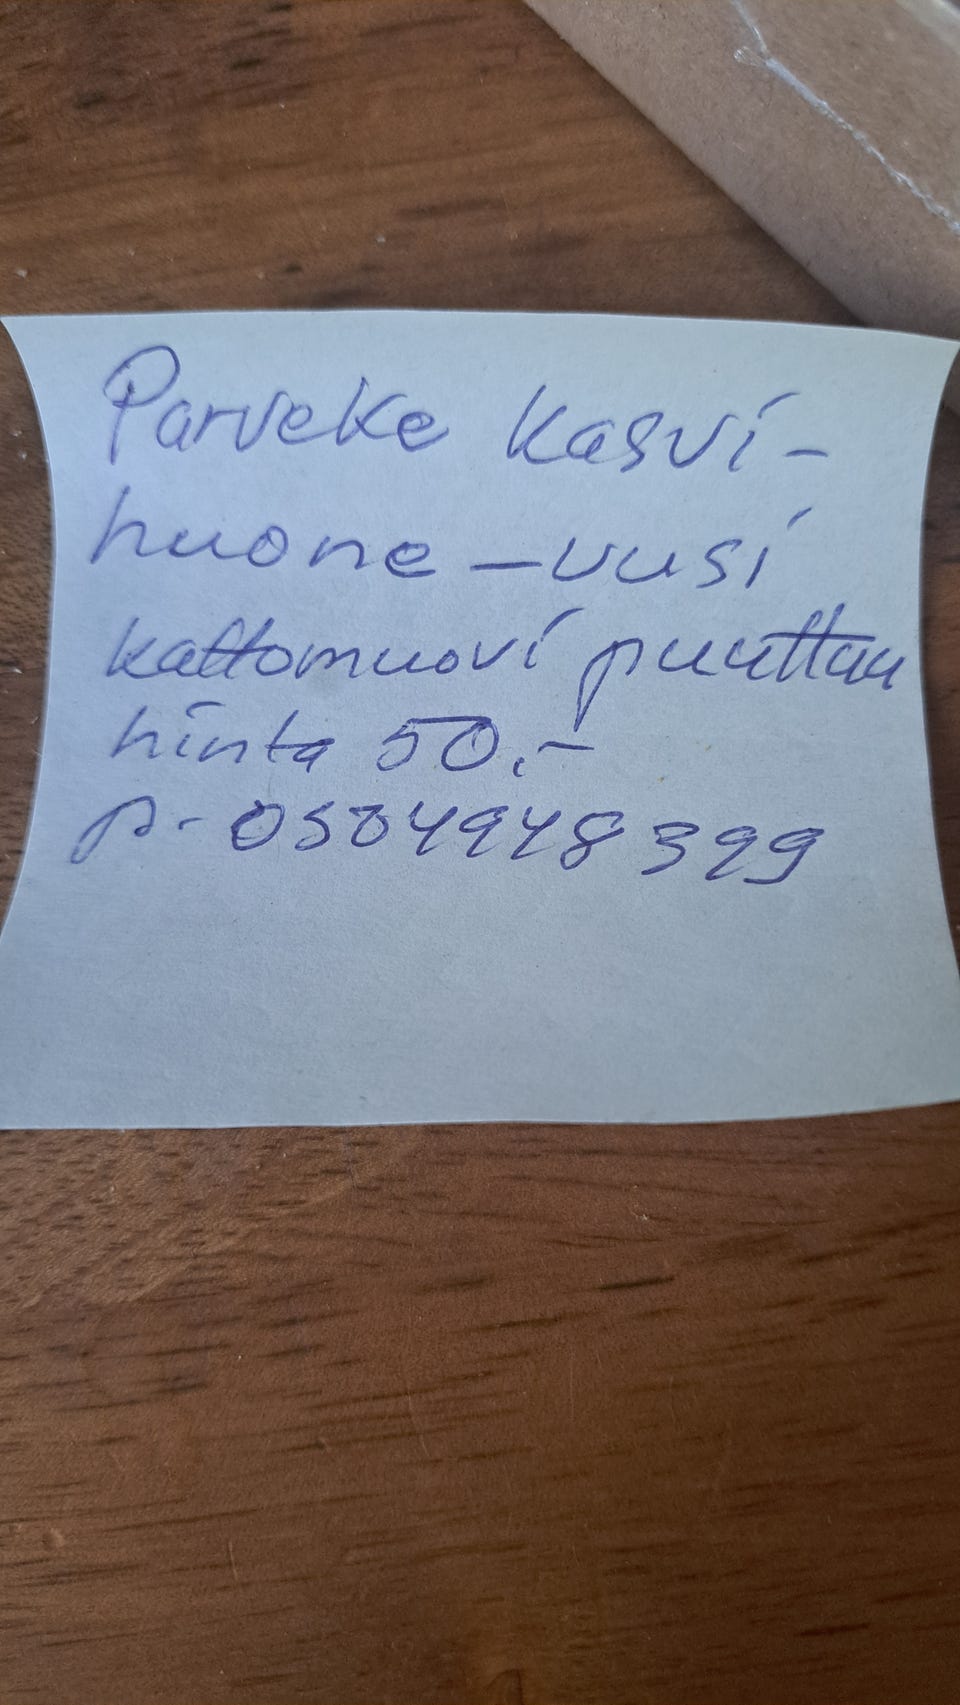 Parveke kasvi-
huone - uusi
kattomuovi puuttuu
hinta 50.-
p. 0504948399